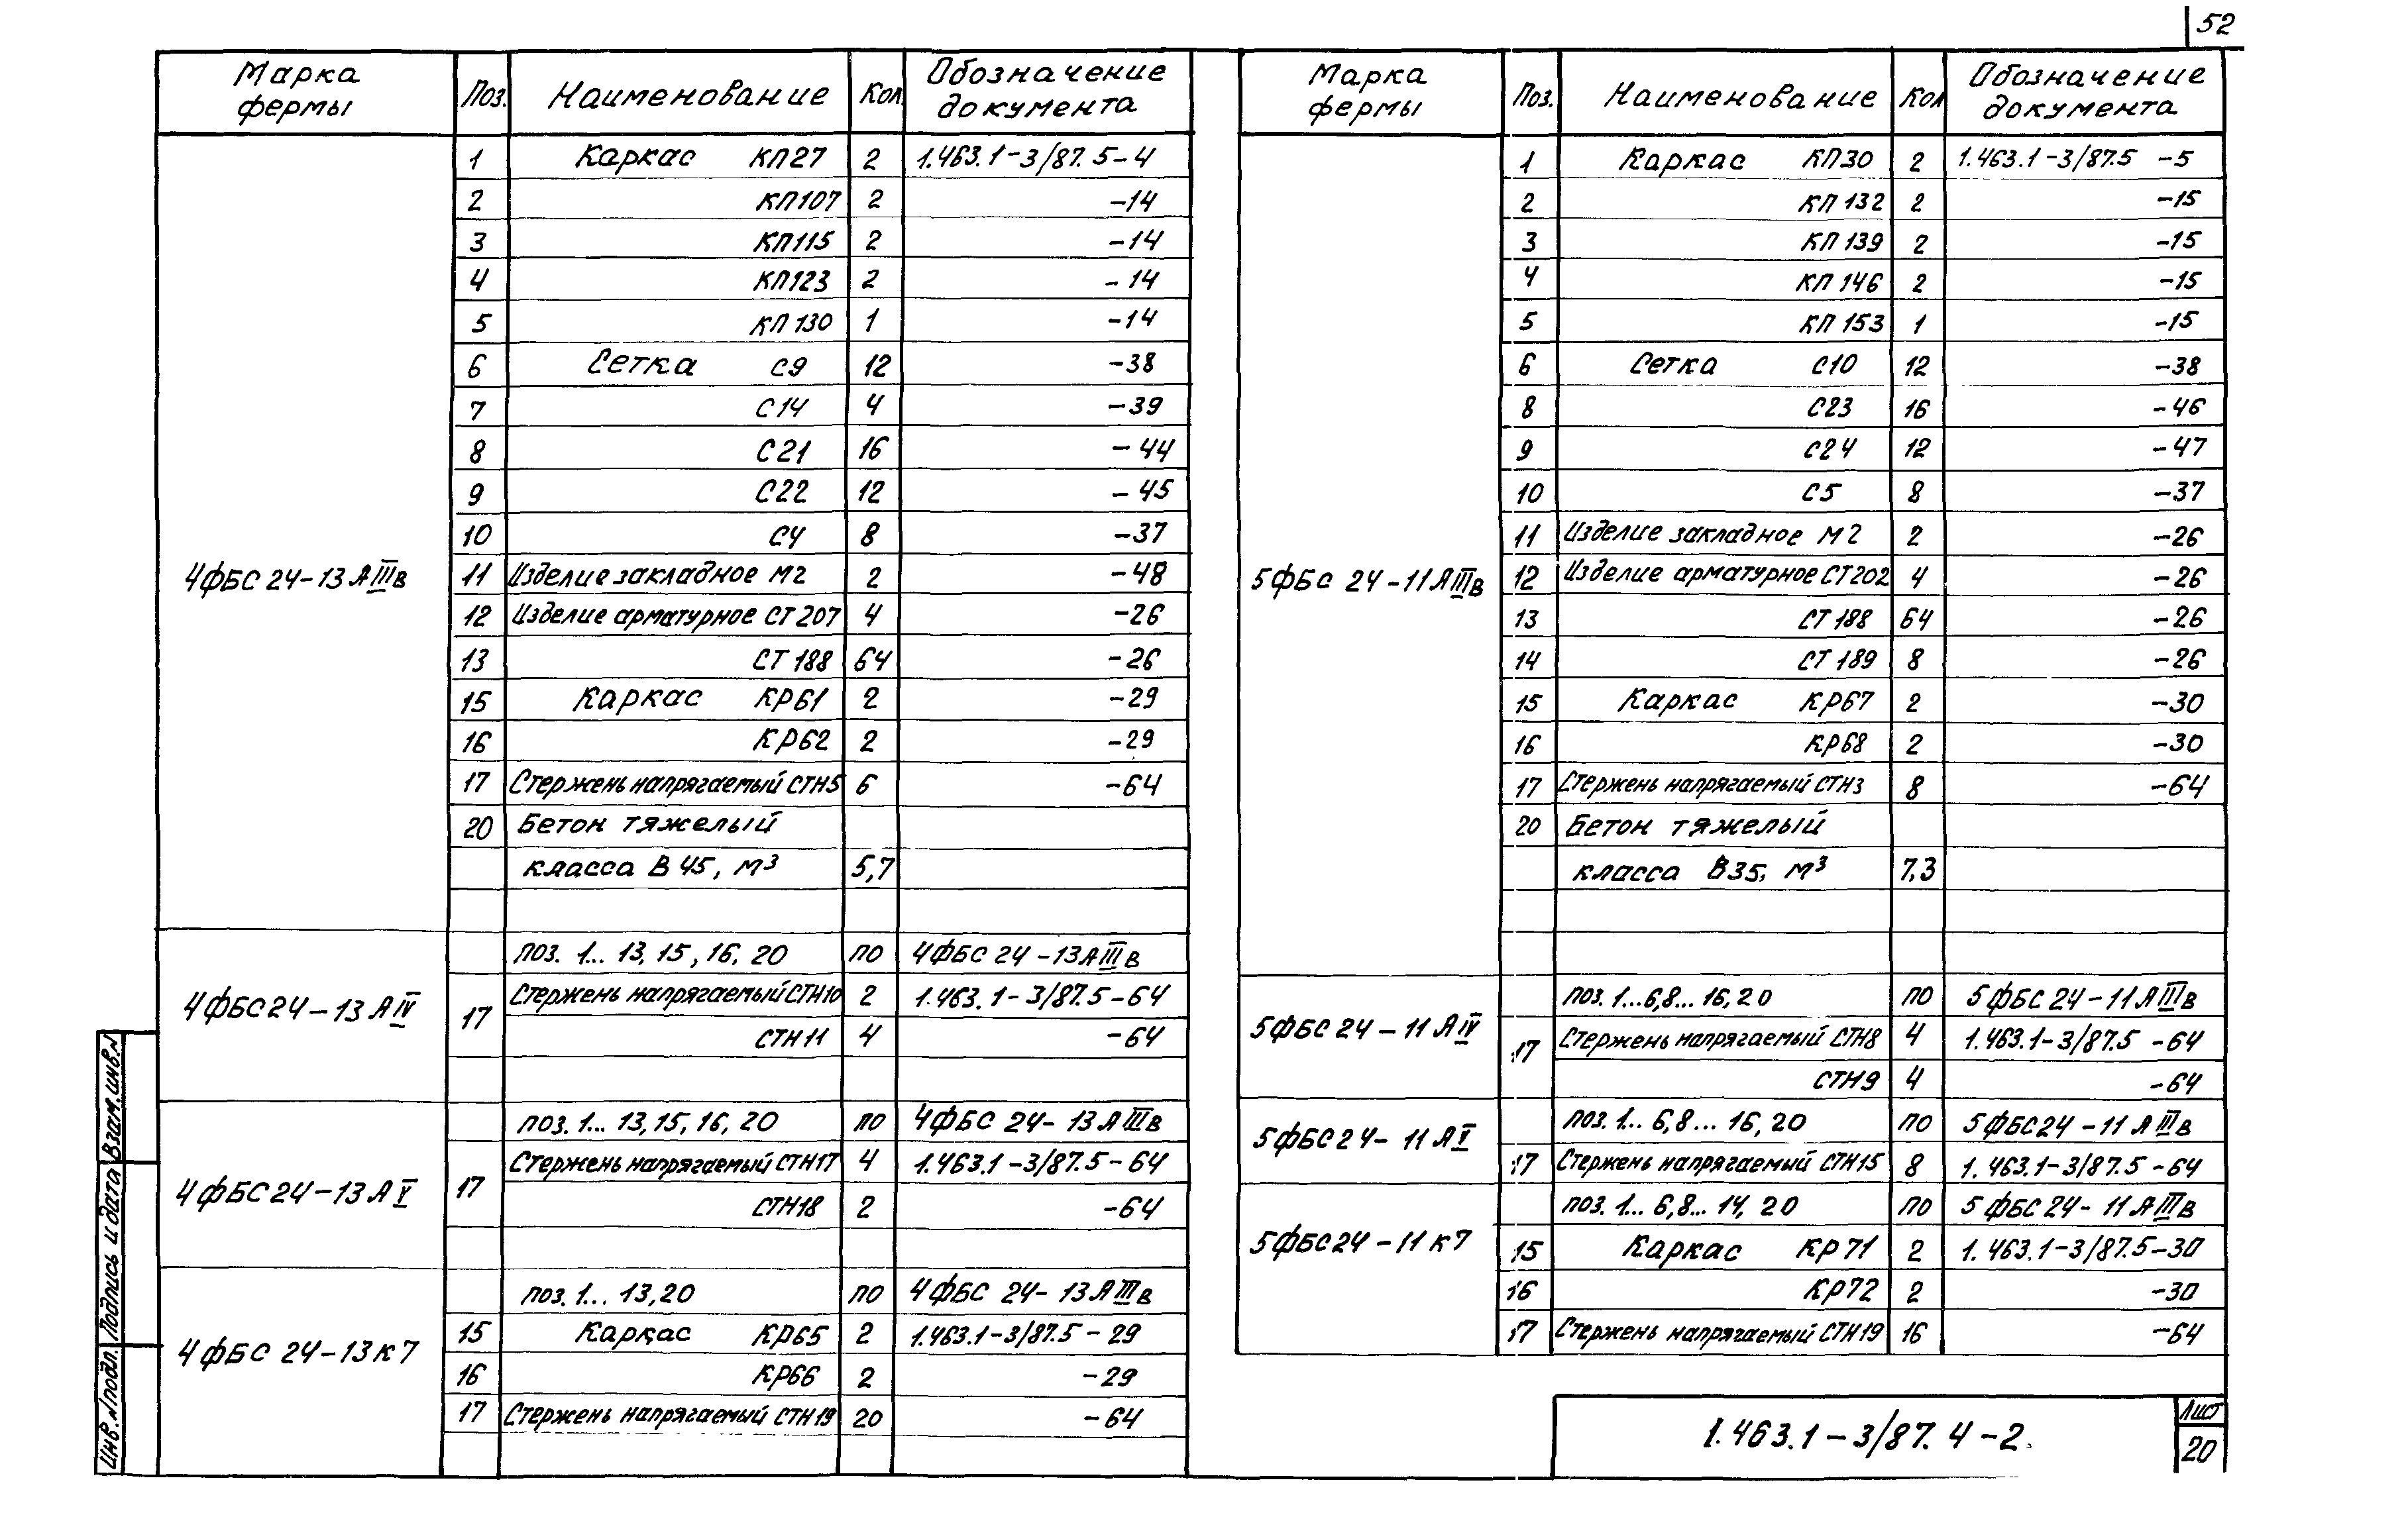 52
Марка фермы | Поз. | Наименование | Кол. | Обозначение документа
4ФБС 24-13 АIIIв
1 | Каркас КП27 | 2 | 1.463.1-3/87.5-4
2 | КП107 | 2 | -14
3 | КП115 | 2 | -14
4 | КП123 | 2 | -14
5 | КП130 | 1 | -14
6 | Сетка С9 | 12 | -38
7 | С14 | 4 | -39
8 | С21 | 16 | -44
9 | С22 | 12 | -45
10 | С4 | 8 | -37
11 | Изделие закладное М2 | 2 | -48
12 | Изделие арматурное СТ207 | 4 | -26
13 | СТ188 | 64 | -26
15 | Каркас КР61 | 2 | -29
16 | КР62 | 2 | -29
17 | Стержень напрягаемый СТН5 | 6 | -64
20 | Бетон тяжелый
класса В45, м³ | 5,7
4ФБС24-13 АIV
поз. 1... 13, 15, 16, 20 | по | 4ФБС 24-13АIIIв
17 | Стержень напрягаемый СТН10 | 2 | 1.463.1-3/87.5-64
СТН11 | 4 | -64
4ФБС24-13 АV
поз. 1... 13, 15, 16, 20 | по | 4ФБС 24-13 АIIIв
17 | Стержень напрягаемый СТН17 | 4 | 1.463.1-3/87.5-64
СТН18 | 2 | -64
4ФБС 24-13 К7
поз. 1... 13, 20 | по | 4ФБС 24-13 АIIIв
15 | Каркас КР65 | 2 | 1.463.1-3/87.5-29
16 | КР66 | 2 | -29
17 | Стержень напрягаемый СТН19 | 20 | -64
Марка фермы | Поз. | Наименование | Кол | Обозначение документа
5ФБС 24-11АIIIв
1 | Каркас КП30 | 2 | 1.463.1-3/87.5 -5
2 | КП132 | 2 | -15
3 | КП139 | 2 | -15
4 | КП146 | 2 | -15
5 | КП153 | 1 | -15
6 | Сетка С10 | 12 | -38
8 | С23 | 16 | -46
9 | С24 | 12 | -47
10 | С5 | 8 | -37
11 | Изделие закладное М2 | 2 | -26
12 | Изделие арматурное СТ202 | 4 | -26
13 | СТ188 | 64 | -26
14 | СТ189 | 8 | -26
15 | Каркас КР67 | 2 | -30
16 | КР68 | 2 | -30
17 | Стержень напрягаемый СТН3 | 8 | -64
20 | Бетон тяжелый
класса В35, м³ | 7.3
5ФБС24-11 АIV
поз. 1...6,8...16,20 | по | 5ФБС24-11АIIIв
17 | Стержень напрягаемый СТН8 | 4 | 1.463.1-3/87.5 -64
СТН9 | 4 | -64
5ФБС24-11 АV
поз. 1... 6,8... 16,20 | по | 5ФБС24-11 АIIIв
17 | Стержень напрягаемый СТН15 | 8 | 1.463.1-3/87.5-64
5ФБС24-11К7
поз. 1... 6,8... 14, 20 | по | 5ФБС24-11АIIIв
15 | Каркас КР71 | 2 | 1.463.1-3/87.5-30
16 | КР72 | 2 | -30
17 | Стержень напрягаемый СТН19 | 16 | -64
Инв. N подл. | Подпись и дата | Взам. инв. N
1.463.1-3/87.4-2.
Лист
20